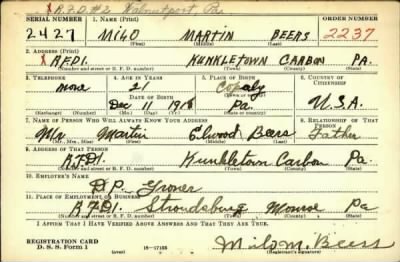 R.F.D.#2 Walnutport, Pa
SERIAL NUMBER 1. NAME (Print) ORDER NUMBER
2427 MILO MARTIN BEERS 2237
(First) (Middle) (Last)
2. ADDRESS (Print)
RFD1. KUNKLETOWN CARBON PA.
(Number and street or R. F. D. number) (Town) (County) (State)
3. TELEPHONE 4. AGE IN YEARS 5. PLACE OF BIRTH 6. COUNTRY OF CITIZENSHIP
none 21
DATE OF BIRTH (Town or county)
Dec 11 Pa. U.S.A.
(Exchange) (No.) (Mo.) (Day) (Yr.) (State or country)
7. NAME OF PERSON WHO WILL ALWAYS KNOW YOUR ADDRESS 8. RELATIONSHIP OF THAT PERSON
Mr Martin Elwood Beers Father
(Mr., Mrs., Miss) (First) (Middle) (Last)
9. ADDRESS OF THAT PERSON
RFD1. Kunkletown Carbon Pa.
(Number and street or R. F. D. number) (Town) (County) (State)
10. EMPLOYER'S NAME
D.P. Groner
11. PLACE OF EMPLOYMENT OR BUSINESS
RFD1. Stroudsburg Monroe Pa
(Number and street or R. F. D. number) (Town) (County) (State)
I AFFIRM THAT I HAVE VERIFIED ABOVE ANSWERS AND THAT THEY ARE TRUE.
REGISTRATION CARD
D. S. S. Form 1 (over) 16—17105 Milo M. Beers
(Registrant's signature)